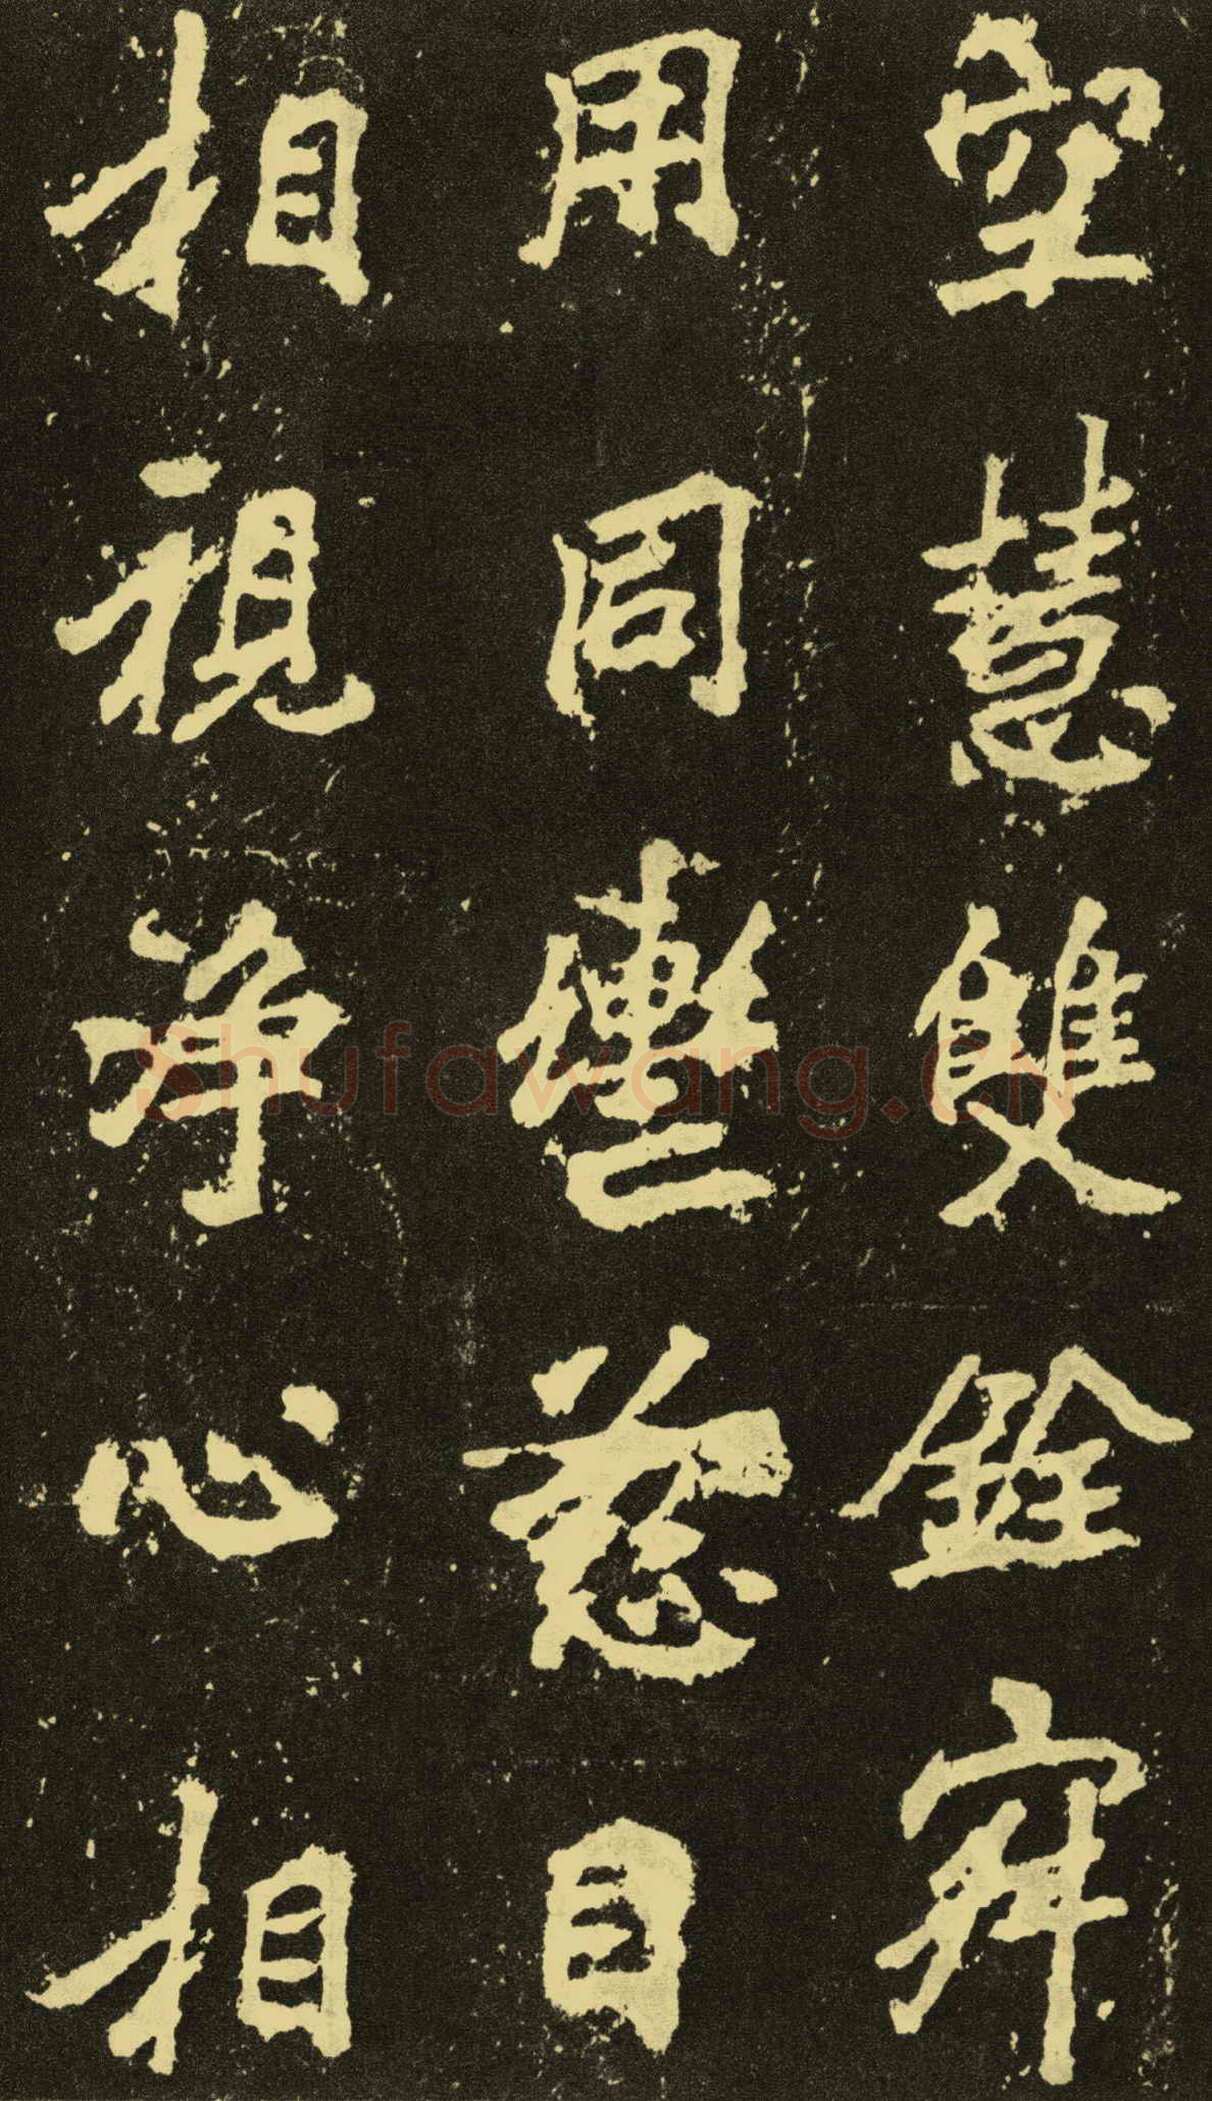 空慧雙銓寂
用同轡慈目
相視净心相
Shufawang.CN